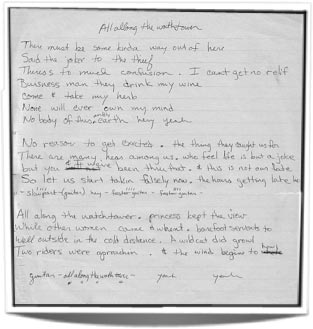 All along the watchtower
There must be some kinda way out of here
Said the joker to the theif
Theres to much confusion. I cant get no relif
Buisness man they drink my wine
Come & take my herb
None will ever own my mind
No body of this earth hey yeah
No reason to get excited. the thing they taught us for
There are many hear among us. who feel life is but a joke
but you & I have been thru that. & this is not our fate
So let us start talkin falsely now. the hours getting late he
All along the watchtower. princess kept the view
While other women came & whent. barefoot servants to
well outside in the cold distence. A wildcat did growl
Two riders were aproachin. & the wind begins to howl
guitar - all along the watch tower - yeah yeah